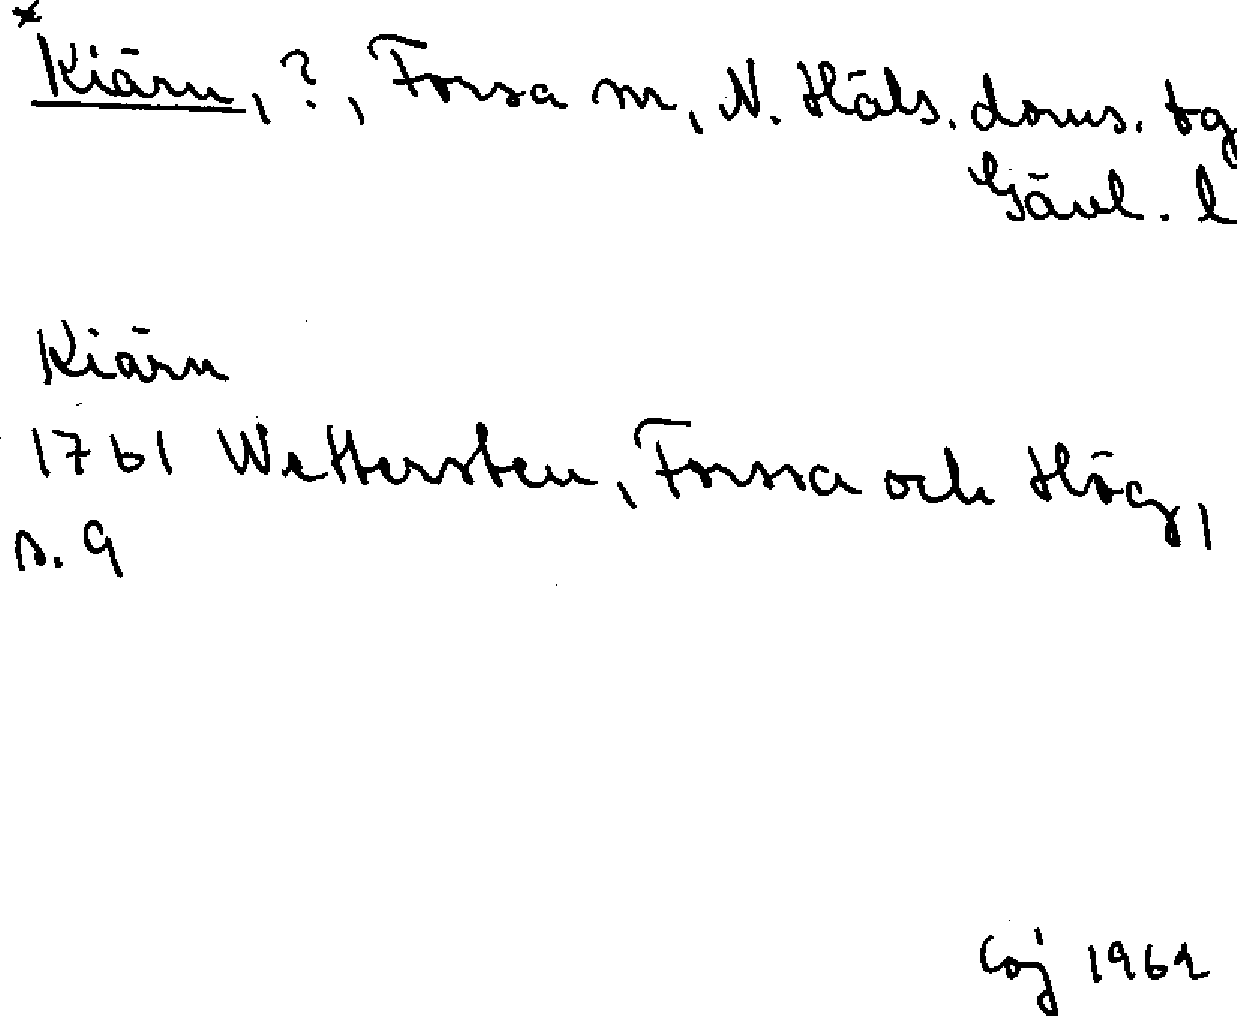 *Kiärn, ?, Forsa sn, N. Häls. doms. tg
Gävl. l
Kiärn
1761 Wettersten, Forssa och Hög,
s. 9
Coj 1962